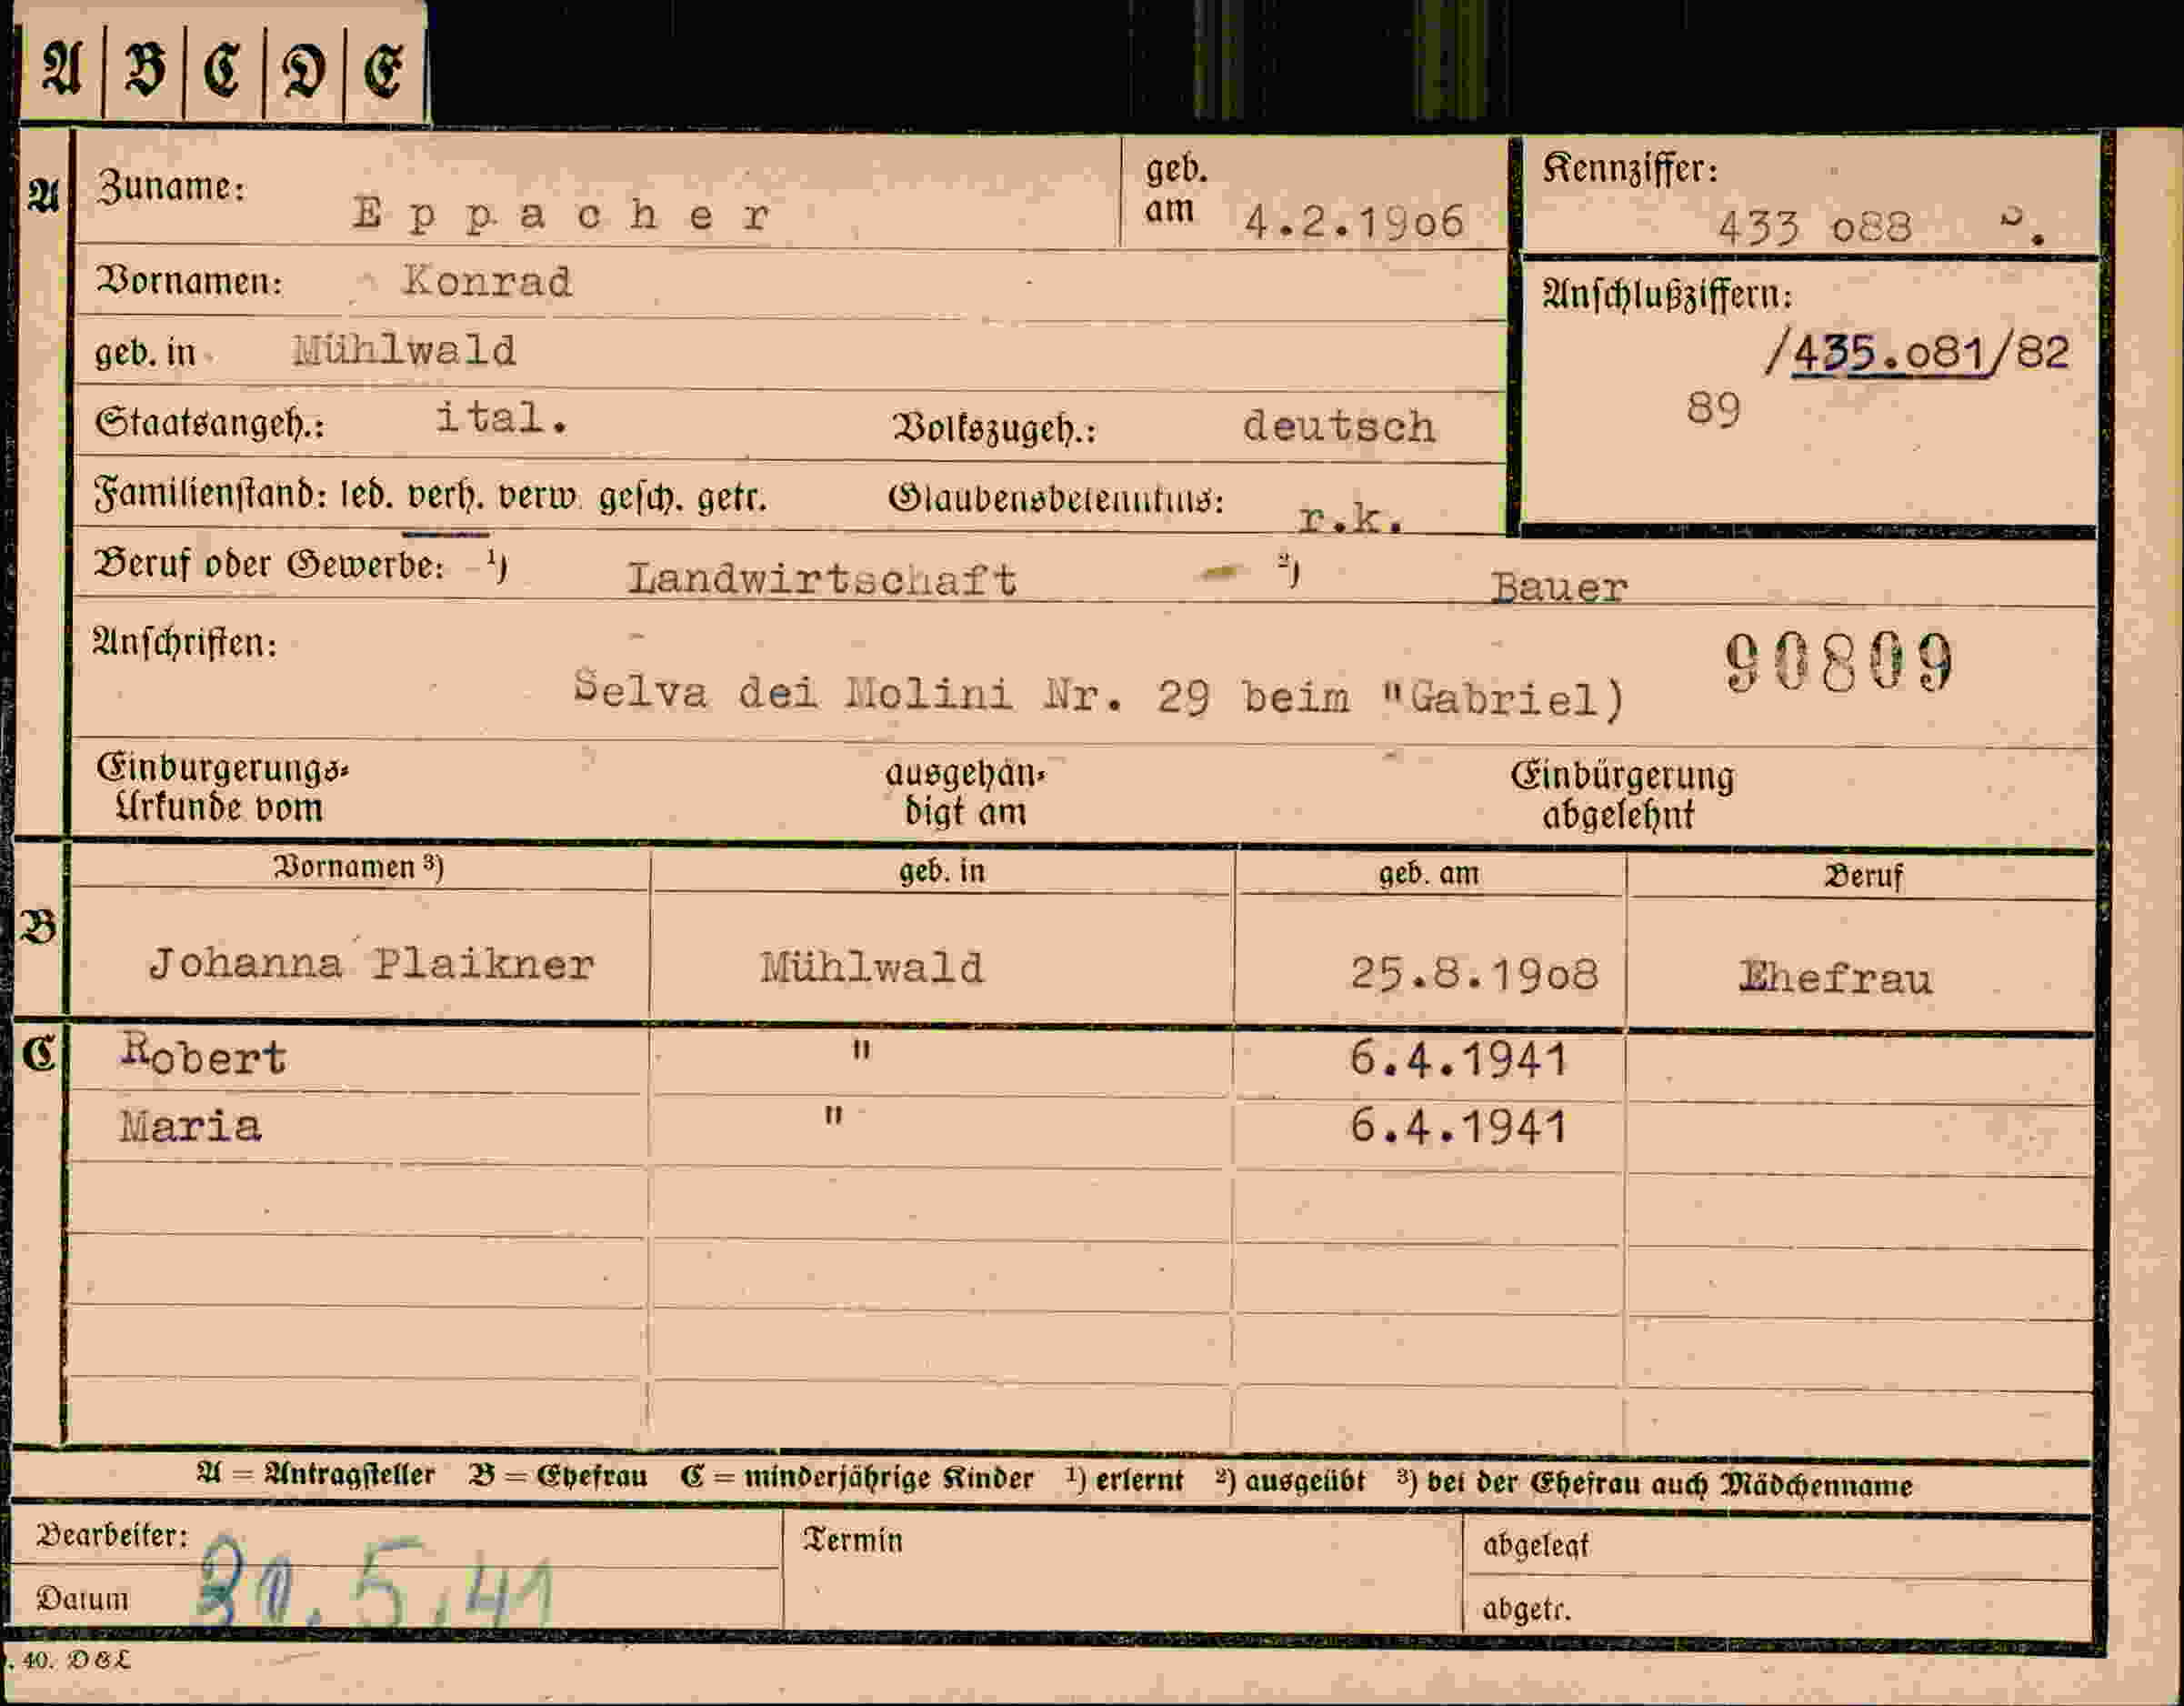 A B C D E
A Zuname: Eppacher geb. am 4.2.19o6 Kennziffer: 433 o88
Vornamen: Konrad
Anschlußziffern:
geb. in Mühlwald /435.o81/82
Staatsangeh.: ital. Volkszugeh.: deutsch 89
Familienstand: led. verh. verw. gesch. getr. Glaubensbekenntnis: r.k.
Beruf oder Gewerbe: ¹) Landwirtschaft ²) Bauer
Anschriften: 90809
Selva dei Molini Nr. 29 beim "Gabriel)
Einbürgerungs= ausgehän= Einbürgerung
Urkunde vom digt am abgelehnt
Vornamen ³) geb. in geb. am Beruf
B Johanna Plaikner Mühlwald 25.8.19o8 Ehefrau
C Robert " 6.4.1941
Maria " 6.4.1941
A = Antragsteller B = Ehefrau C = minderjährige Kinder ¹) erlernt ²) ausgeübt ³) bei der Ehefrau auch Mädchenname
Bearbeiter: Termin abgelegt
Datum 5.41 abgetr.
. 40. D&L